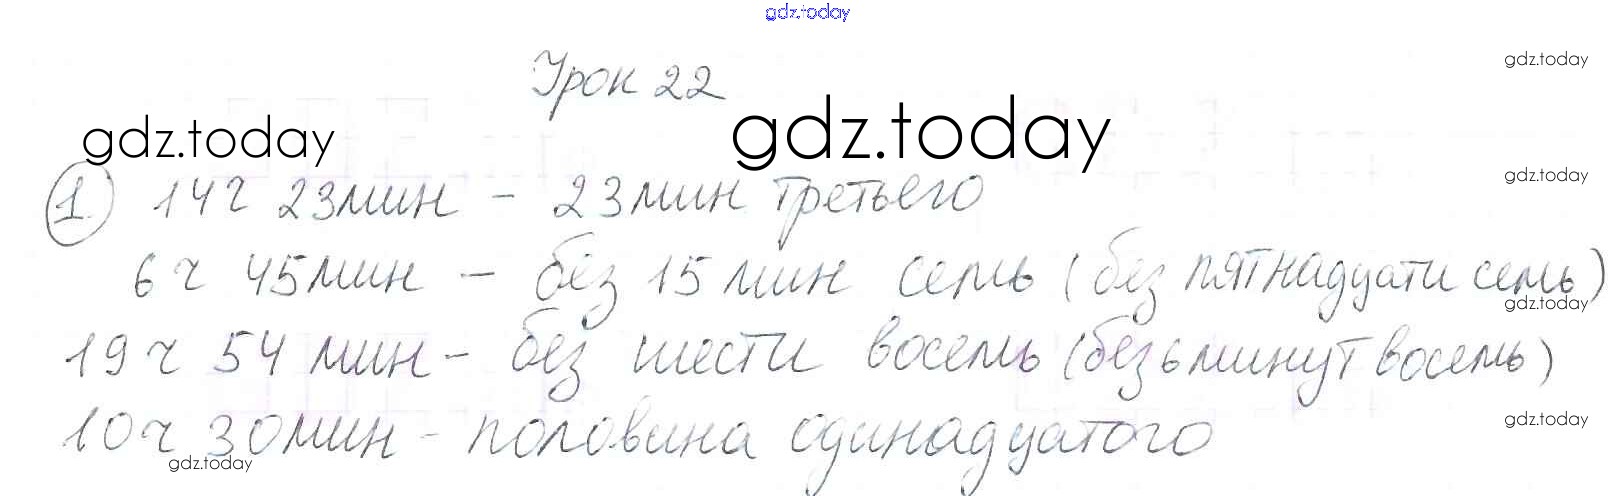 gdz.today
Урок 22
gdz.today
gdz.today
gdz.today
① 14ч 23мин – 23мин третьего
gdz.today
6ч 45мин – без 15 мин семь (без пятнадцати семь)
gdz.today
19ч 54 мин – без шести восемь (без 6 минут восемь)
10ч 30мин – половина одинадцатого
gdz.today
gdz.today